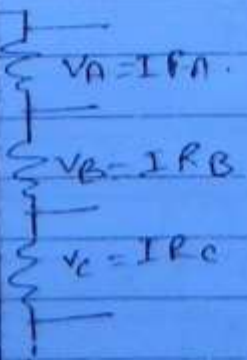 VA = IRA.
VB = IRB
VC = IRC